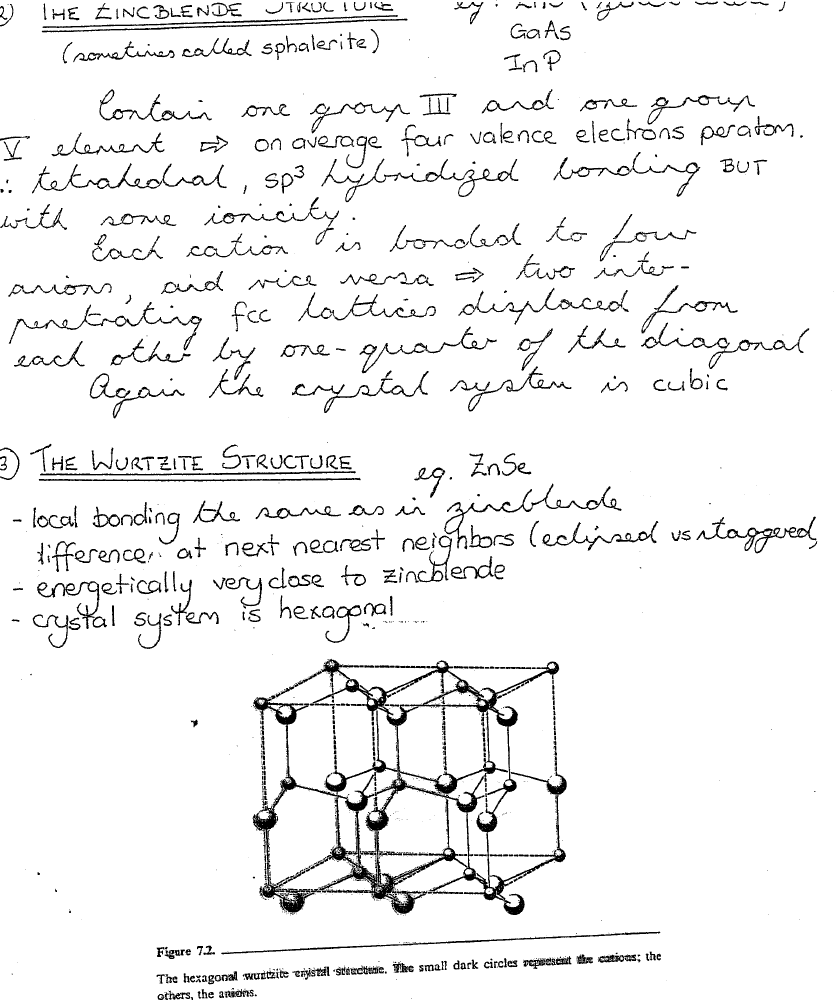 2) THE ZINCBLENDE STRUCTURE eg.
(sometimes called sphalerite) GaAs
InP
Contain one group III and one group
V element ⇒ on average four valence electrons per atom.
∴ tetrahedral, sp³ hybridized bonding BUT
with some ionicity.
Each cation is bonded to four
anions, and vice versa ⇒ two inter-
penetrating fcc lattices displaced from
each other by one-quarter of the diagonal
Again the crystal system is cubic
3 THE WURTZITE STRUCTURE eg. ZnSe
- local bonding the same as in zincblende
difference, at next nearest neighbors (eclipsed vs staggered)
- energetically very close to zincblende
- crystal system is hexagonal
Figure 7.2.
The hexagonal wurtzite crystal structure. The small dark circles represent the cations; the
others, the anions.